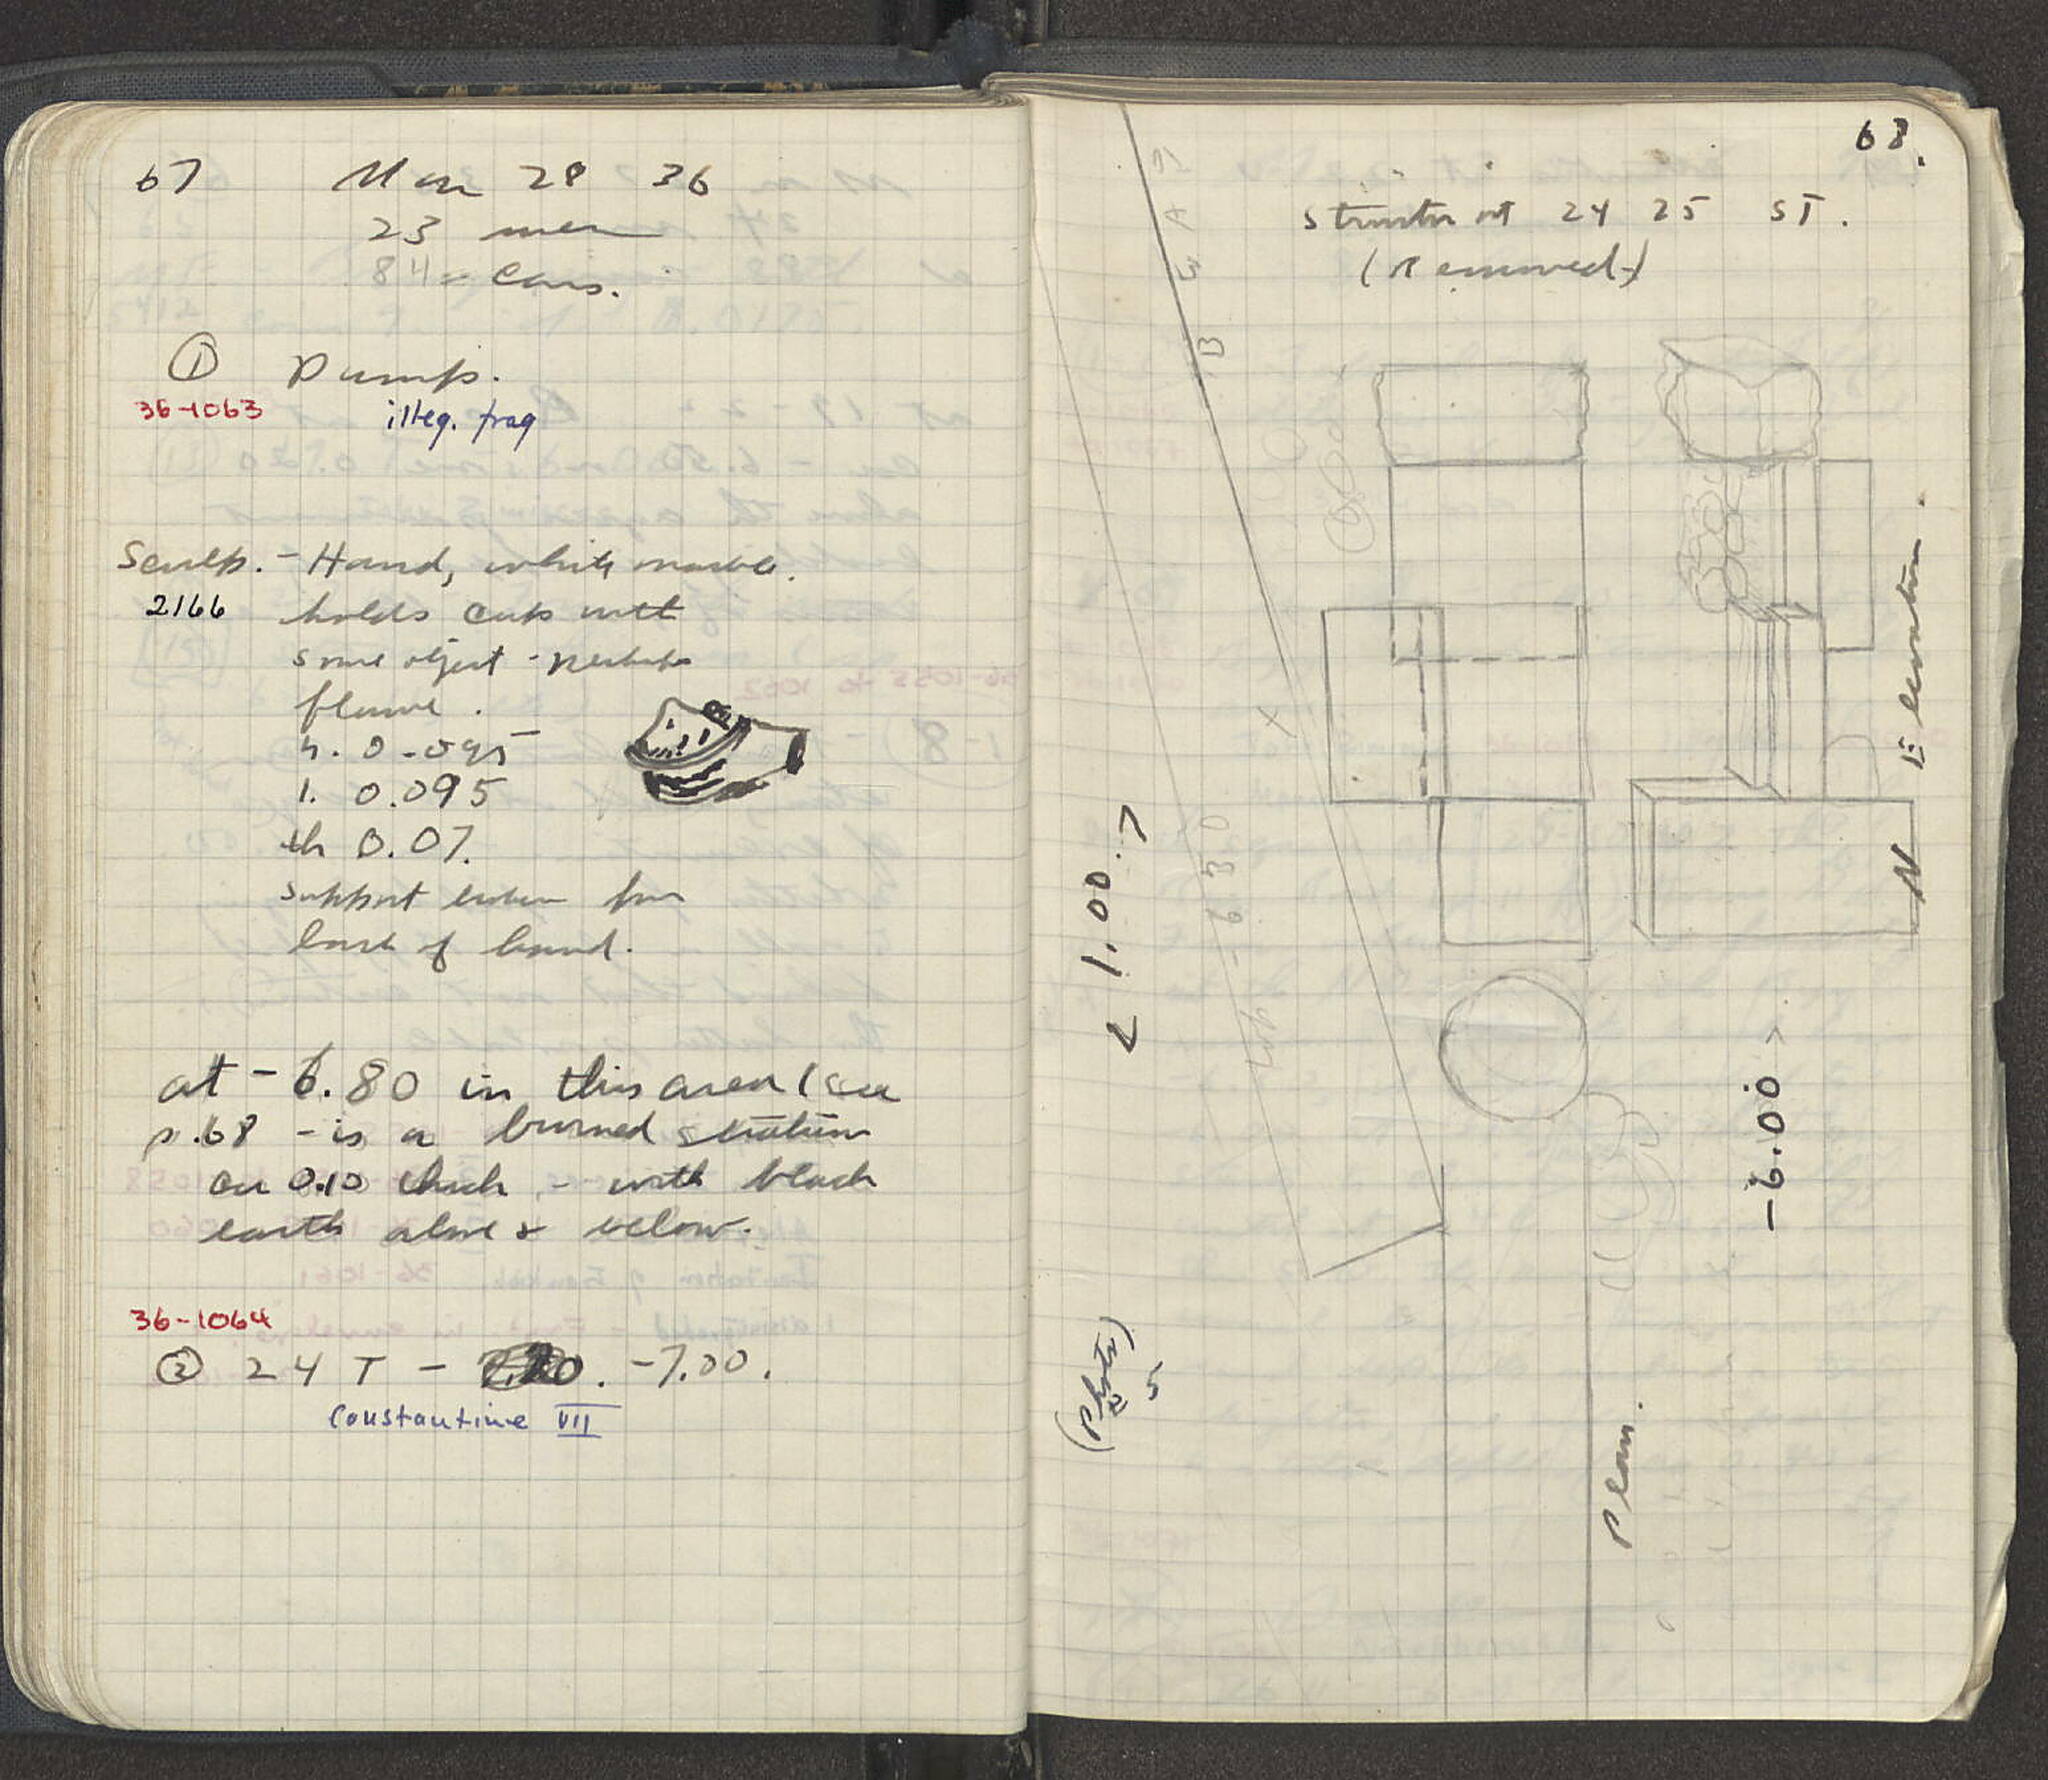 67 Mar 28 36
23 men
84 = Cars.
① Dump.
36-1063 illeg. frag
Sculp. - Hand, white marble.
2166 holds cup with
some object - perhaps
flame.
h. 0.095
l. 0.095
th 0.07.
support broken from
back of hand.
at -6.80 in this area (see
p.68 - is a burned stratum
ca 0.10 thick - with black
earth above & below.
36-1064
② 24 T - -7.00.
Constantine VII
68.
Structure at 24 25 ST.
(Removed)
Elevation.
N
< 1.00. >
-6.30
-6.00 >
(Photo)
5
Plan.